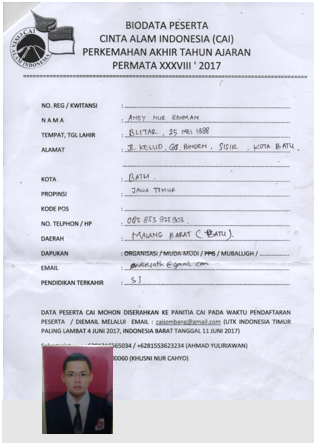 BIODATA PESERTA
CINTA ALAM INDONESIA (CAI)
PERKEMAHAN AKHIR TAHUN AJARAN
PERMATA XXXVIII ' 2017
NO. REG / KWITANSI :
N A M A : ANDY NUR ROHMAN
TEMPAT, TGL LAHIR : BLITAR, 25 MEI 1988
ALAMAT : JL. KELUD, SISIR, KOTA BATU
KOTA : BATU
PROPINSI : JAWA TIMUR
KODE POS :
NO. TELPHON / HP :
DAERAH : MALANG BARAT ( BATU ).
DAPUKAN : ORGANISASI / MUDA-MUDI / PPG / MUBALLIGH /
EMAIL : @gmail.com
PENDIDIKAN TERKAHIR : S1
DATA PESERTA CAI MOHON DISERAHKAN KE PANITIA CAI PADA WAKTU PENDAFTARAN
PESERTA / DIEMAIL MELALUI EMAIL : caijombang@gmail.com (UTK INDONESIA TIMUR
PALING LAMBAT 4 JUNI 2017, INDONESIA BARAT TANGGAL 11 JUNI 2017)
/ +6281553623234 (AHMAD YULIRIAWAN)
(KHUSNI NUR CAHYO)